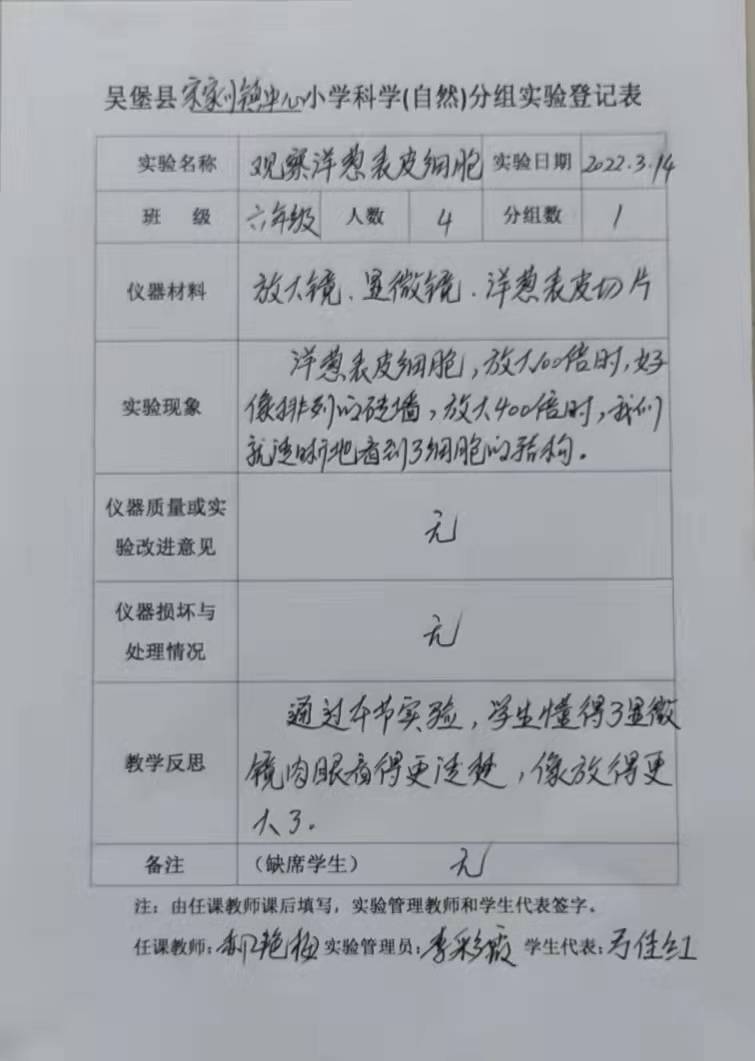 吴堡县宋家川镇中心小学科学(自然)分组实验登记表
实验名称 观察洋葱表皮细胞 实验日期 2022.3.14
班 级 六年级 人数 4 分组数 1
仪器材料 放大镜、显微镜、洋葱表皮切片
实验现象
洋葱表皮细胞,放大100倍时,好
像排列的砖墙,放大400倍时,我们
就清晰地看到了细胞的结构。
仪器质量或实
验改进意见
无
仪器损坏与
处理情况
无
教学反思
通过本节实验,学生懂得了显微
镜肉眼看得更清楚,像放得更
大了。
备注 (缺席学生) 无
注:由任课教师课后填写,实验管理教师和学生代表签字。
任课教师: 艳梅 实验管理员:李彩霞 学生代表:弓佳红